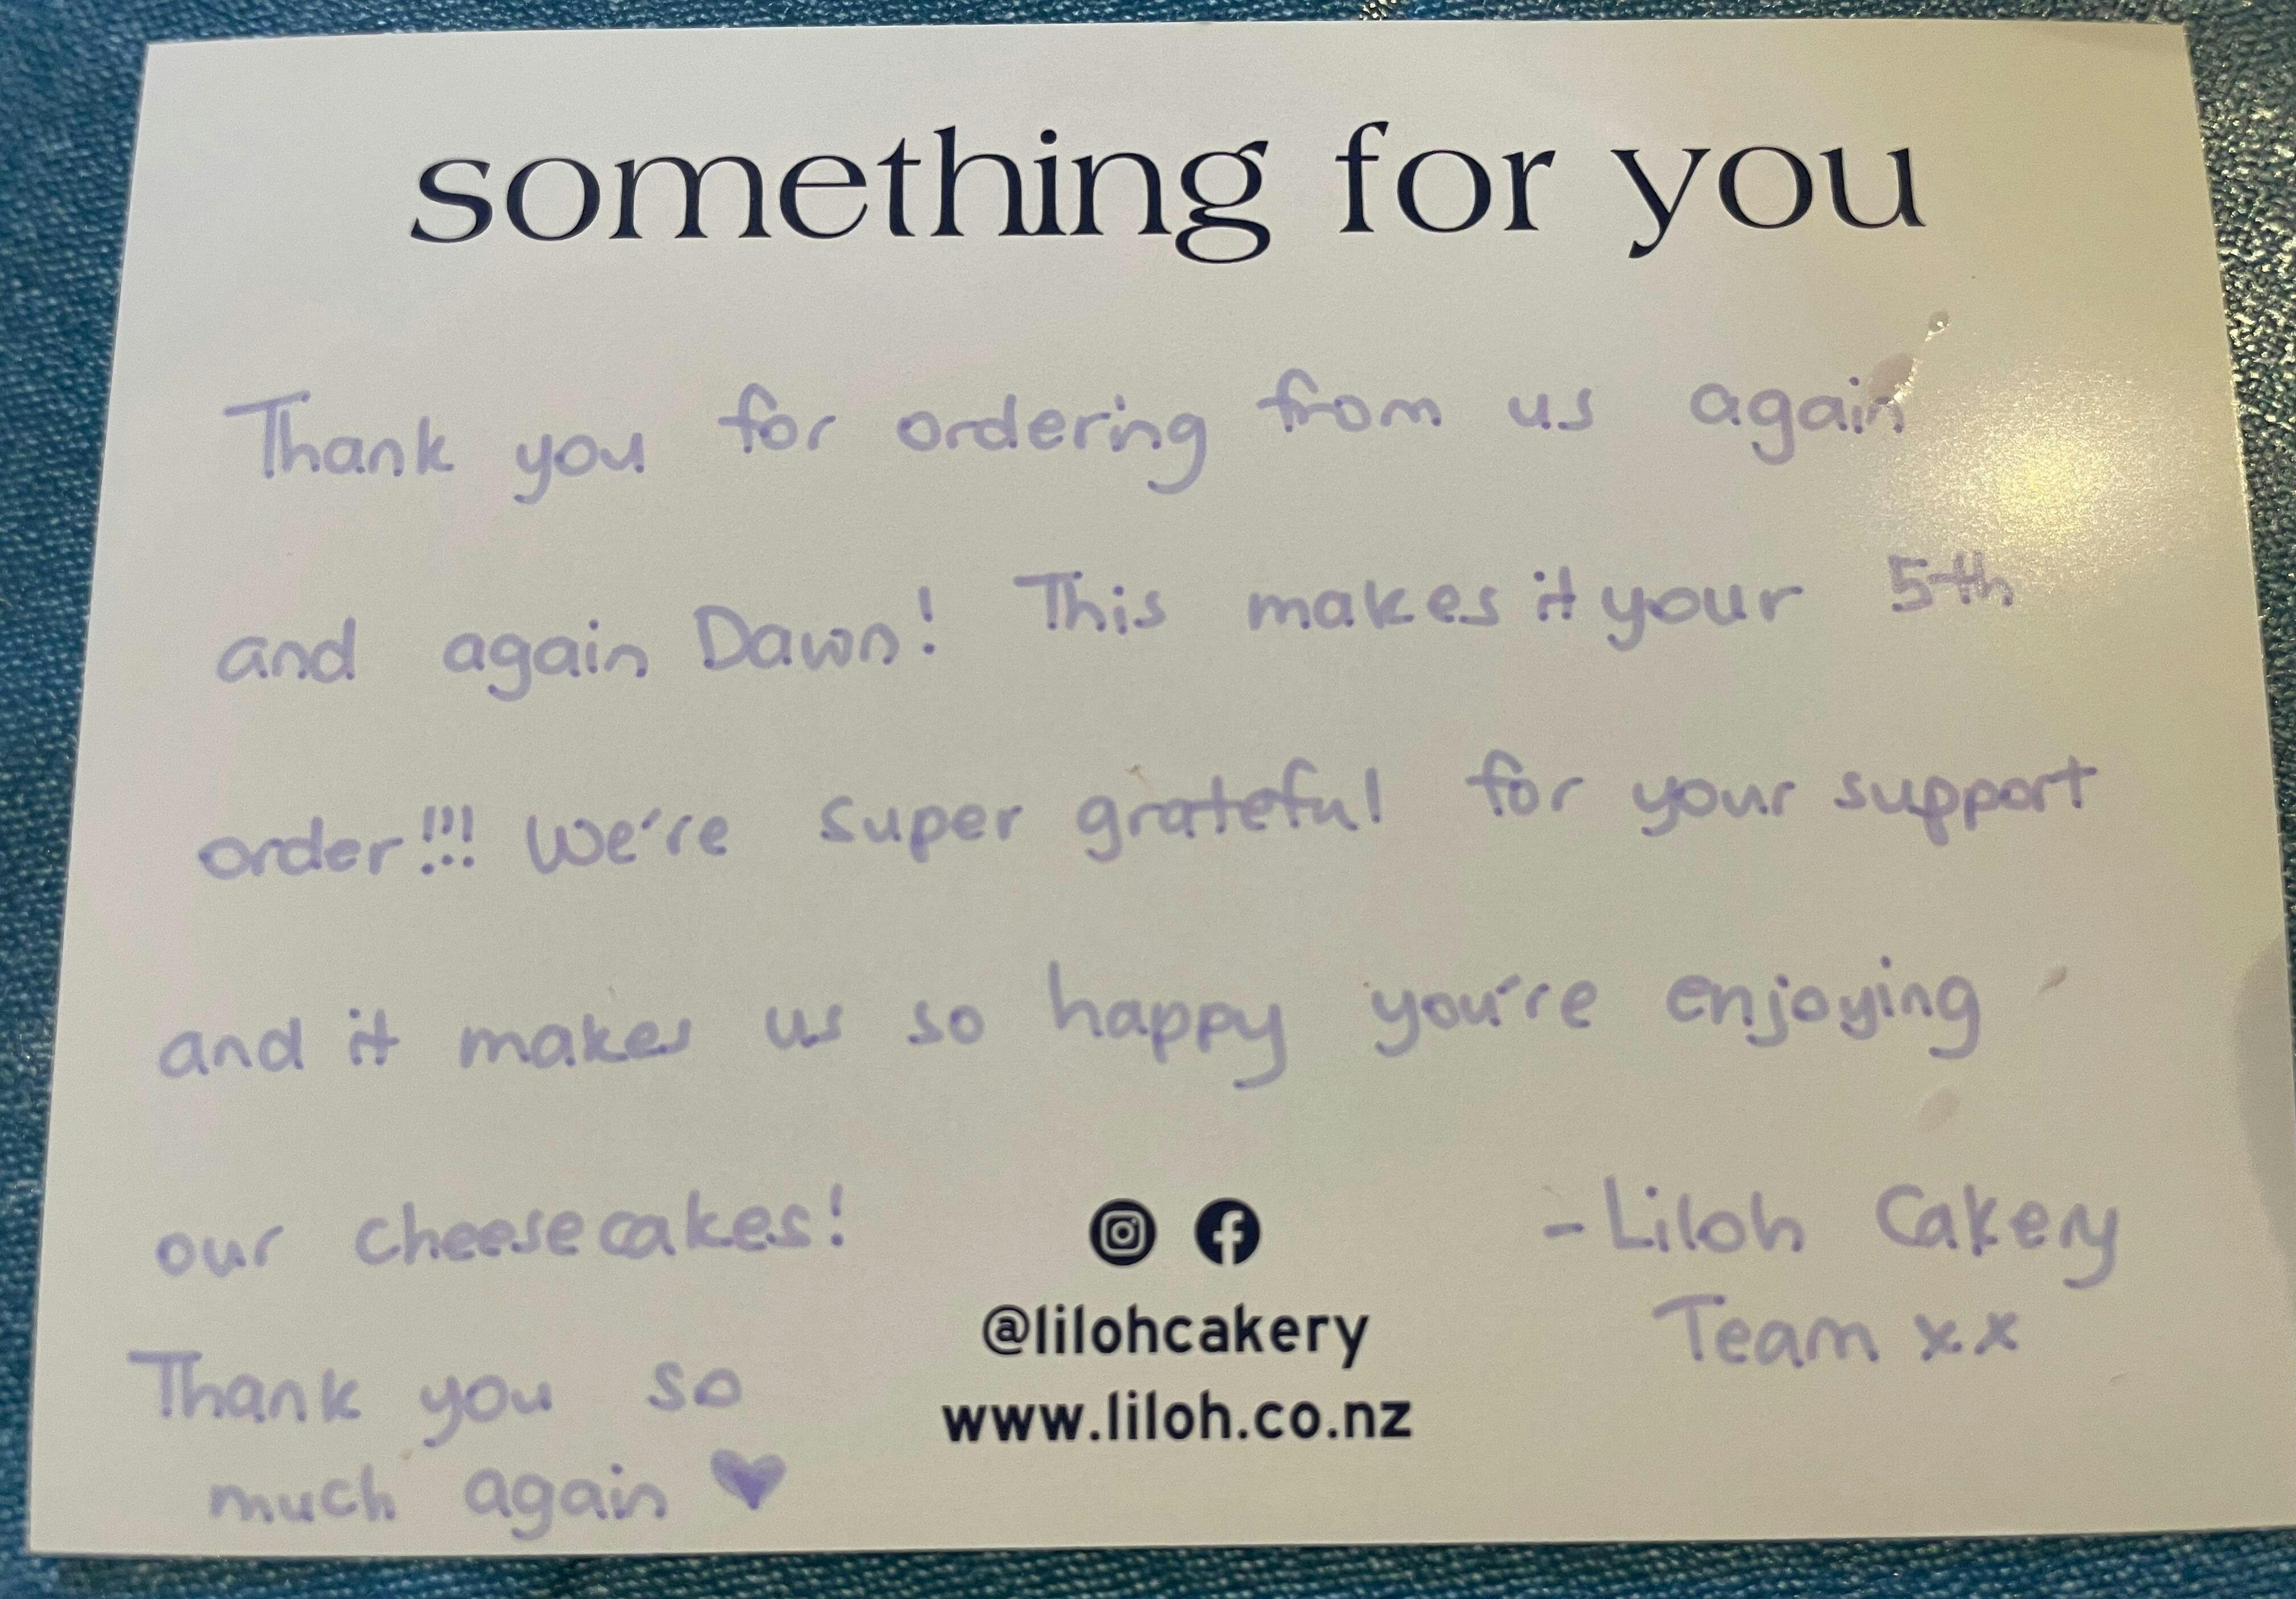 something for you
Thank you for ordering from us again
and again Dawn! This makes it your 5th
order!!! We're super grateful for your support
and it makes us so happy you're enjoying
our cheesecakes!
Thank you so
much again ♥
@lilohcakery
www.liloh.co.nz
- Liloh Cakery
Team xx